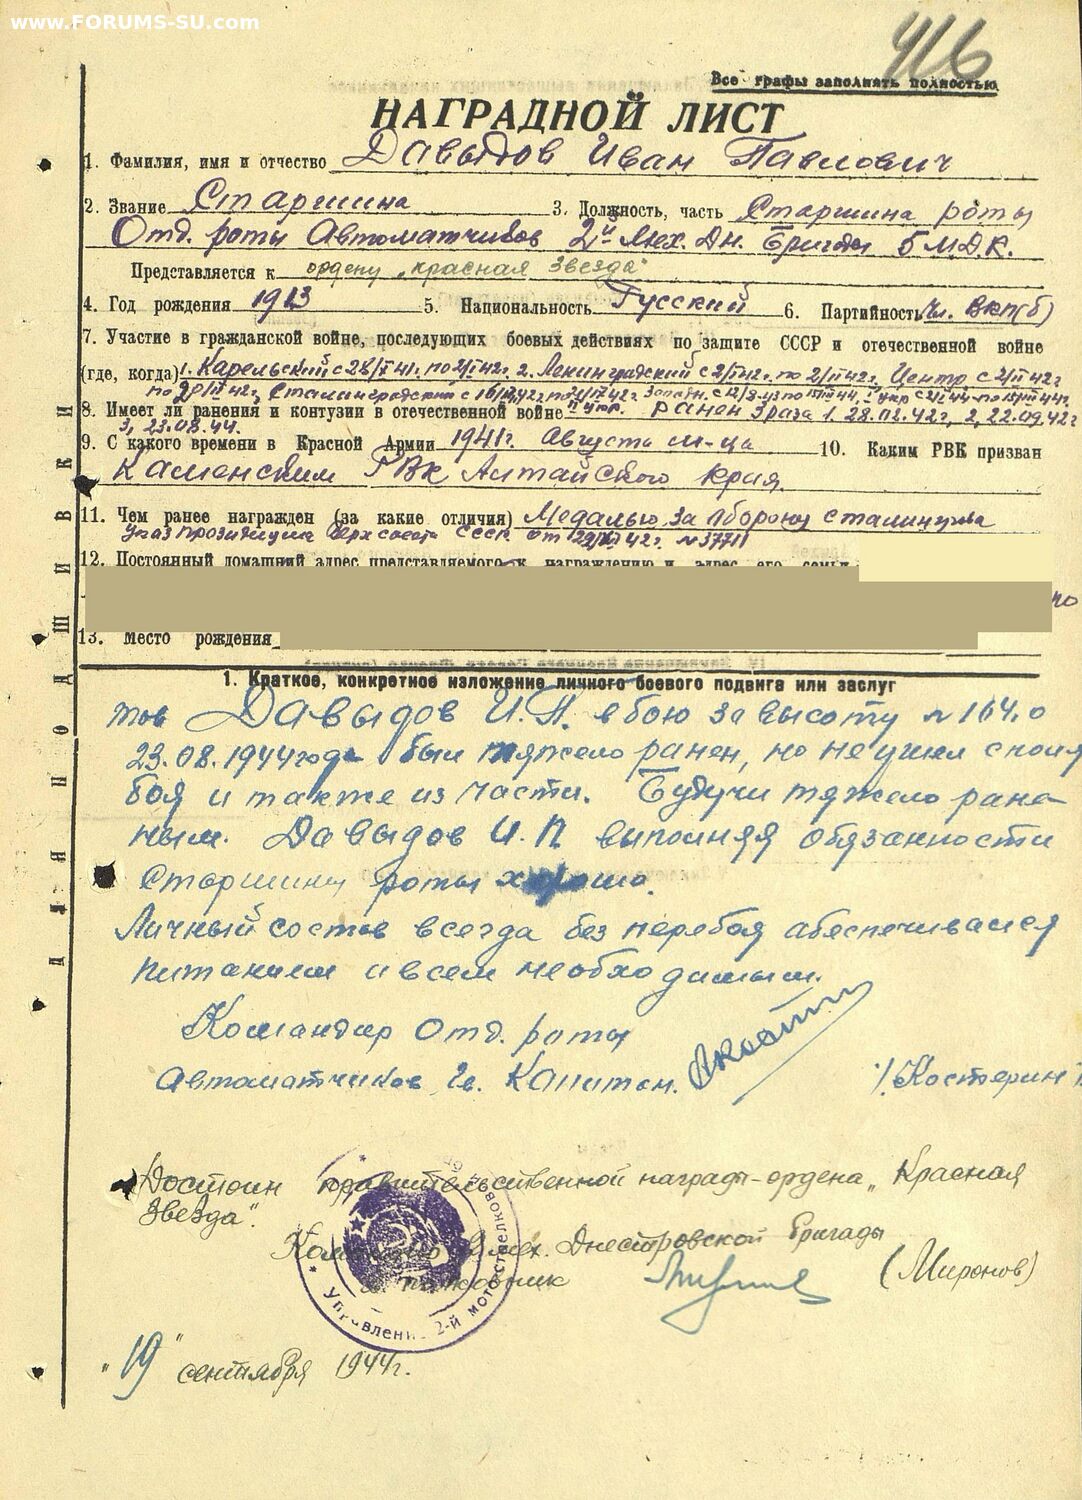 www.FORUMS-SU.com
416
Все графы заполнять полностью
НАГРАДНОЙ ЛИСТ
1. Фамилия, имя и отчество Давыдов Иван Павлович
2. Звание Старшина 3. Должность, часть Старшина роты
Отд. роты Автоматчиков 2й Мех. Дн. Бригады 5 М.Д.К.
Представляется к ордену „Красная Звезда"
4. Год рождения 1913 5. Национальность Русский 6. Партийность Чл. ВКП(б)
7. Участие в гражданской войне, последующих боевых действиях по защите СССР и отечественной войне
(где, когда) 1. Карельский с 28/ 41г. по 2/I 42г. 2. Ленинградский с 2/I 42г. по 2/II 42г. Центр. с 2/II 42г
по 20/ 42г. Сталинградский с 16/ 42г по
8. Имеет ли ранения и контузии в отечественной войне ранен 3 раза 1. 28.02.42г, 2, 22.09.42г
3, 23.08.44.
9. С какого времени в Красной Армии 1941г. Августа м-ца 10. Каким РВК призван
Каменским РВК Алтайского края.
11. Чем ранее награжден (за какие отличия) Медалью за оборону Сталинграда
Указ Президиума Верх совета СССР. от 42г. № 37711
12. Постоянный домашний адрес представляемого к награждению и адрес его семьи
13. Место рождения
ДЛЯ ПОДШИВКИ
1. Краткое, конкретное изложение личного боевого подвига или заслуг
тов Давыдов И.П. в бою за высоту № 164.0
23.08.1944 года был тяжело ранен, но не ушел споля
боя и также из части. Будучи тяжело ране-
ным. Давыдов И.П выполняя обязанности
Старшины роты хорошо.
Личный состав всегда без перебоя абеспечивался
питанием и всем необходимым.
Командир Отд. роты
Автоматчиков Гв. Капитан. /Костерин/
Достоин правительственной награды - ордена „Красная
Звезда".
Командир 2 мех. Днестровской бригады
полковник (Миронов)
Управление 2-й мотострелковой
„19" сентября 1944г.